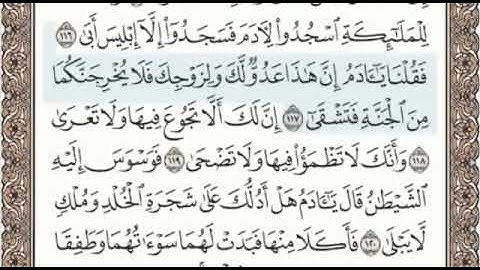 لِلْمَلَـٰٓئِكَةِ ٱسْجُدُوا۟ لِـَٔادَمَ فَسَجَدُوٓا۟ إِلَّآ إِبْلِيسَ أَبَىٰ ١١٦
فَقُلْنَا يَـٰٓـَٔادَمُ إِنَّ هَـٰذَا عَدُوٌّ لَّكَ وَلِزَوْجِكَ فَلَا يُخْرِجَنَّكُمَا
مِنَ ٱلْجَنَّةِ فَتَشْقَىٰٓ ١١٧ إِنَّ لَكَ أَلَّا تَجُوعَ فِيهَا وَلَا تَعْرَىٰ
١١٨ وَأَنَّكَ لَا تَظْمَؤُا۟ فِيهَا وَلَا تَضْحَىٰ ١١٩ فَوَسْوَسَ إِلَيْهِ
ٱلشَّيْطَـٰنُ قَالَ يَـٰٓـَٔادَمُ هَلْ أَدُلُّكَ عَلَىٰ شَجَرَةِ ٱلْخُلْدِ وَمُلْكٍ
لَّا يَبْلَىٰ ١٢٠ فَأَكَلَا مِنْهَا فَبَدَتْ لَهُمَا سَوْءَٰتُهُمَا وَطَفِقَا